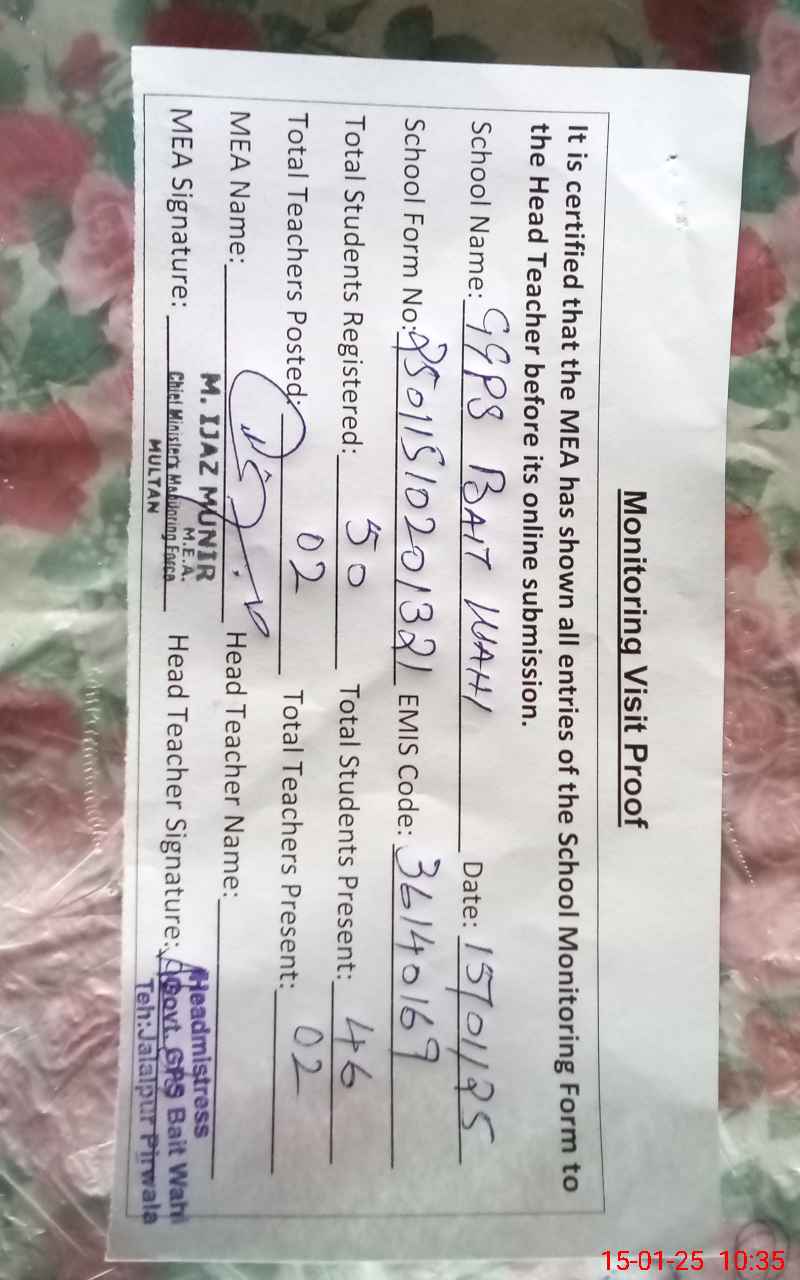 Monitoring Visit Proof
It is certified that the MEA has shown all entries of the School Monitoring Form to
the Head Teacher before its online submission.
School Name: GGPS BAIT WAHI Date: 15/01/25
School Form No: 25011510201321 EMIS Code: 36140169
Total Students Registered: 50 Total Students Present: 46
Total Teachers Posted: 02 Total Teachers Present: 02
MEA Name: Head Teacher Name:
M. IJAZ MUNIR
M.E.A.
MEA Signature: Chief Minister's Monitoring Force Head Teacher Signature:
MULTAN
Headmistress
Govt. GPS Bait Wahi
Teh:Jalalpur Pirwala
15-01-25 10:35